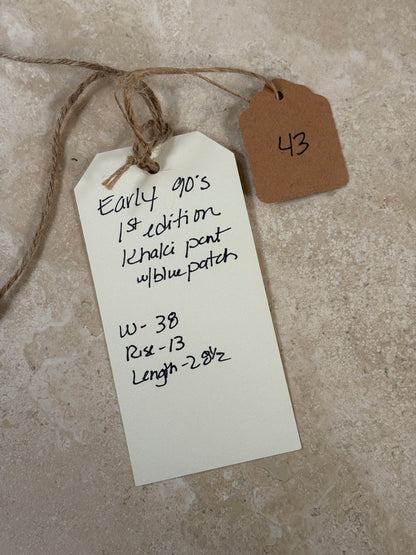 Early 90's
1st edition
Khaki pant
w/blue patch
W- 38
Rise-13
Length-28½
43